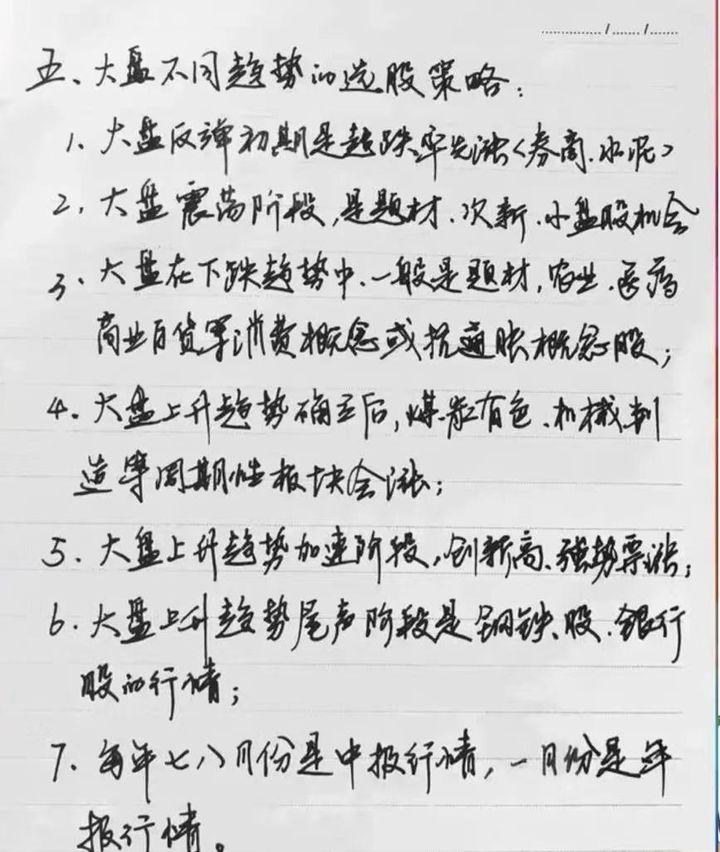 五、大盘不同趋势的选股策略：
1、大盘反弹初期是超跌率先涨<券商、水泥>
2、大盘震荡阶段，是题材、次新、小盘股机会
3、大盘在下跌趋势中、一般是题材，农业、医药
商业百货军消费概念或抗通胀概念股；
4、大盘上升趋势确立后，煤炭有色、机械制
造等周期性板块会涨；
5、大盘上升趋势加速阶段，创新高、强势票涨；
6、大盘上升趋势尾声阶段是钢铁股、银行
股的行情；
7、每年七八月份是中报行情，一月份是年
报行情。